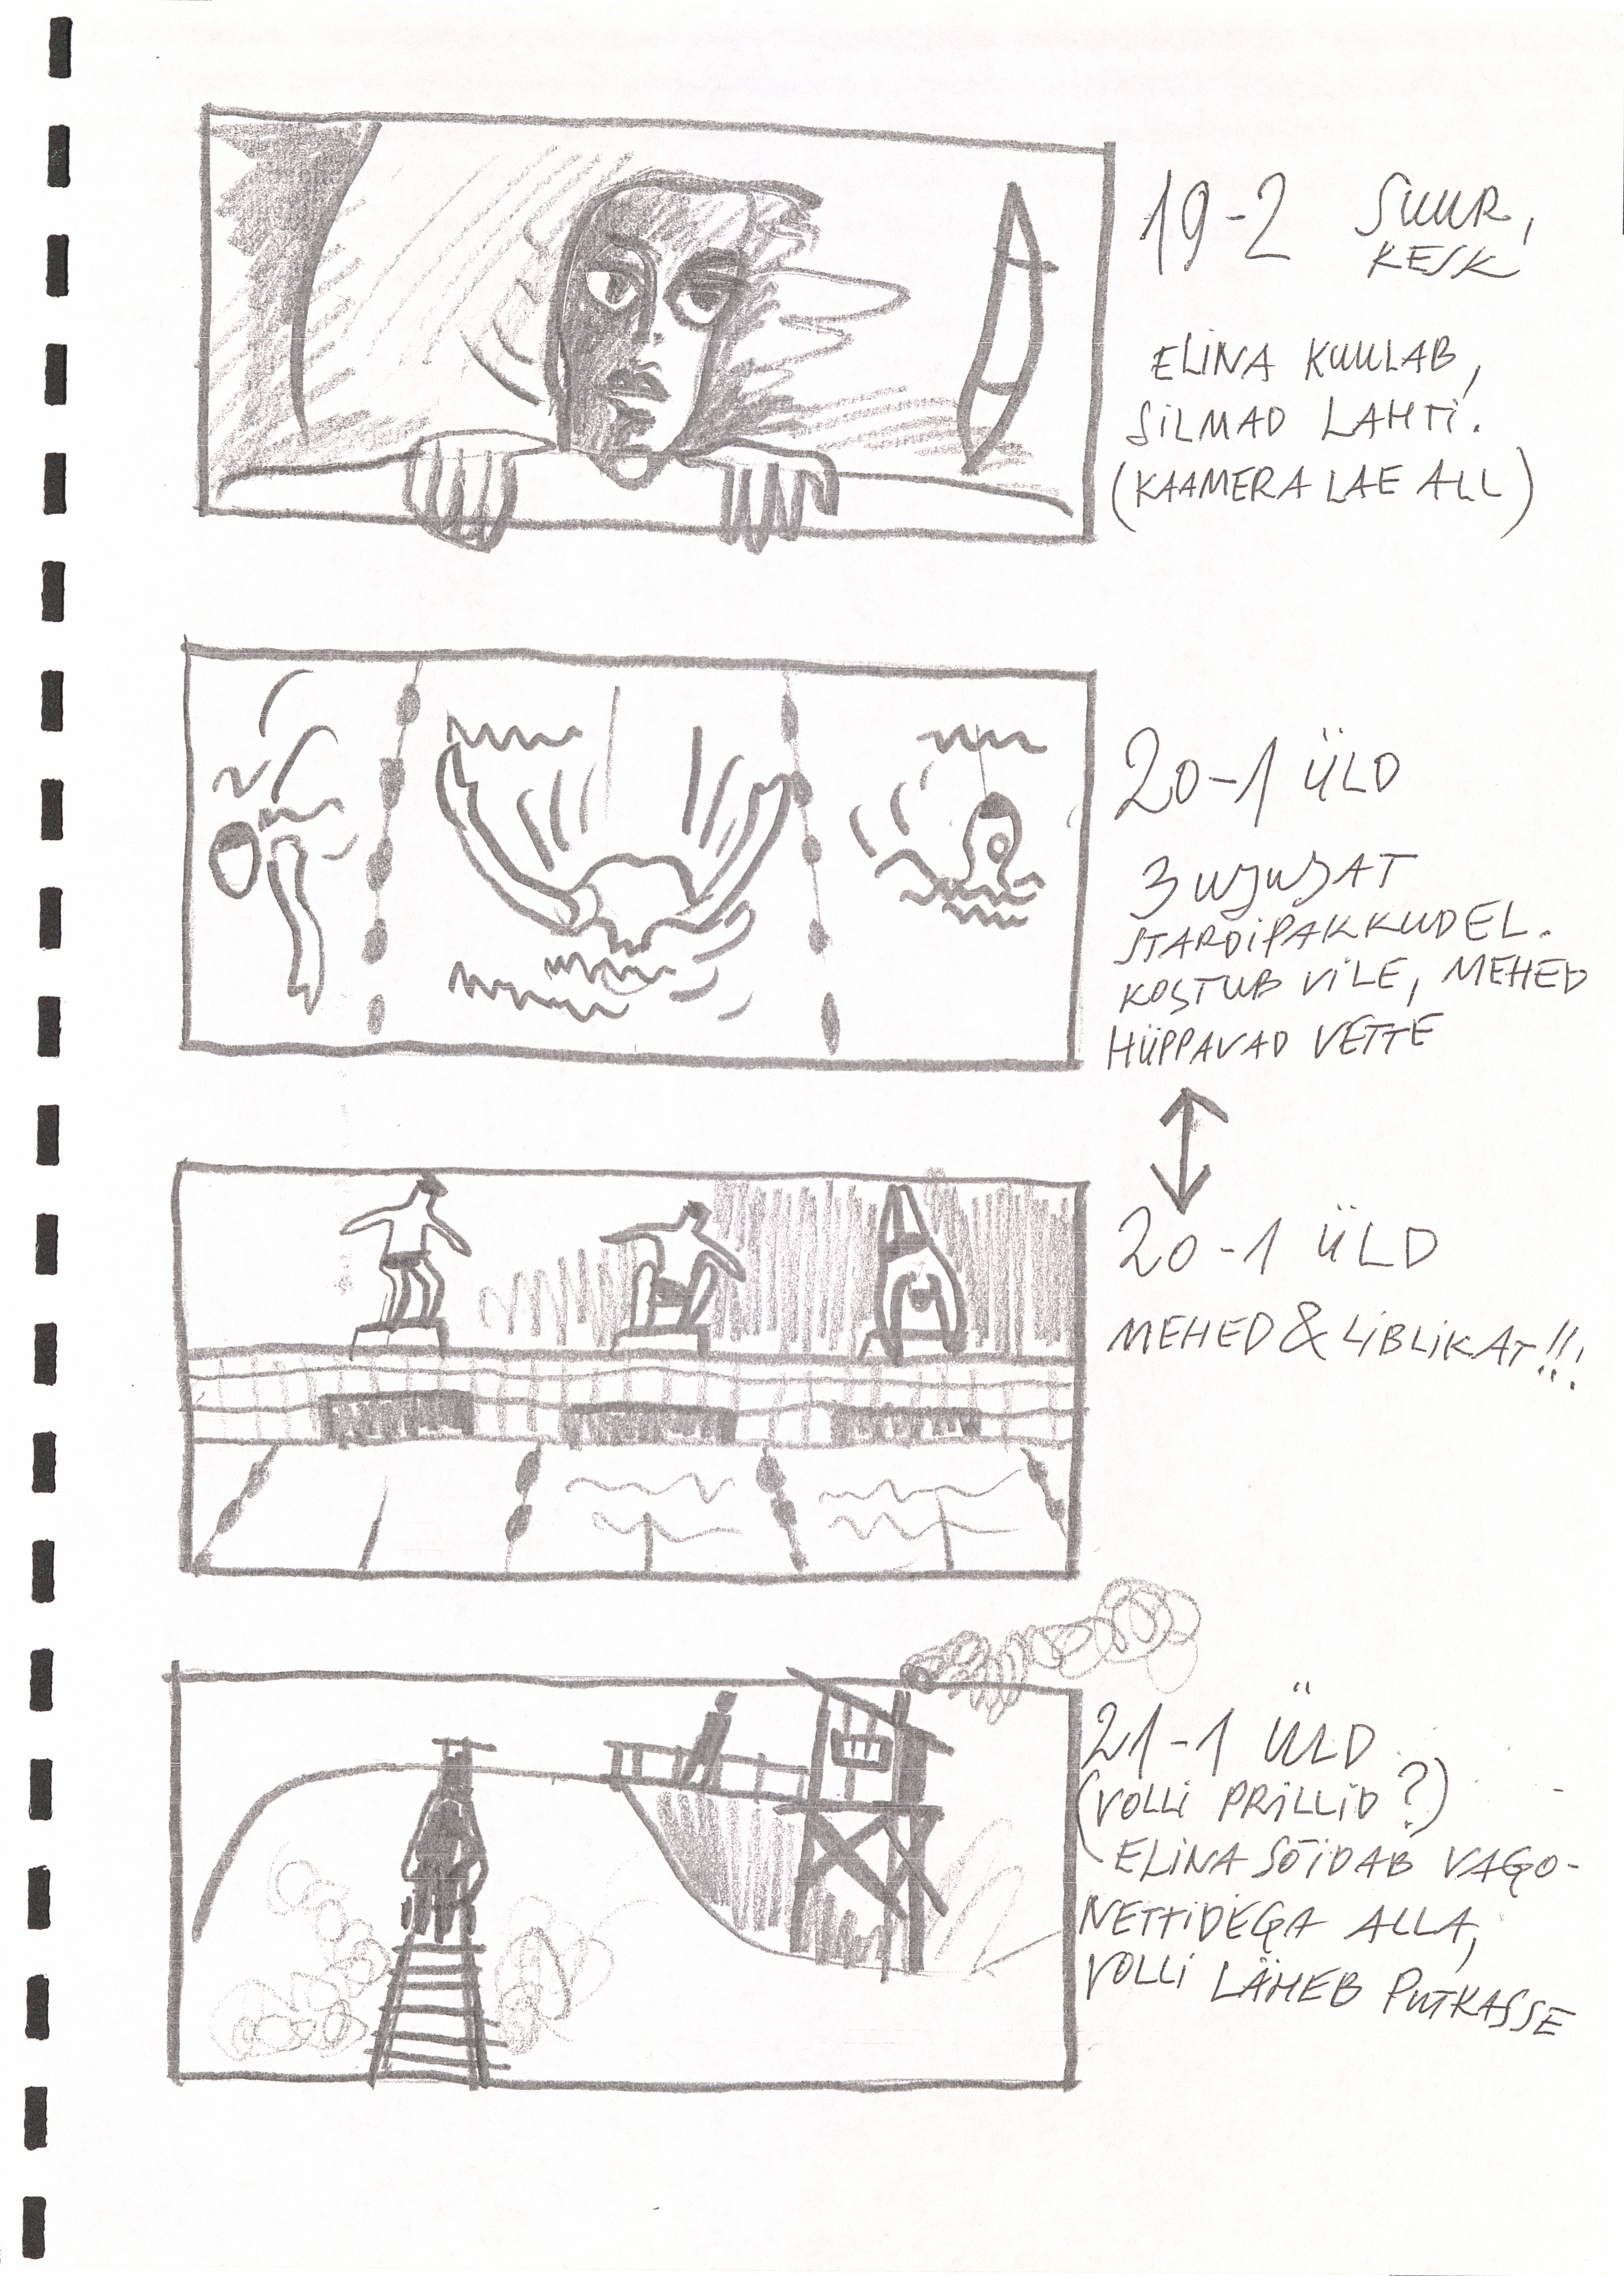 19-2 SUUR,
KESK
ELINA KUULAB,
SILMAD LAHTI.
(KAAMERA LAE ALL)
20-1 ÜLD
3 UJUJAT
STARDIPAKKUDEL.
KOSTUB VILE, MEHED
HÜPPAVAD VETTE
20-1 ÜLD
MEHED & LIBLIKAT!!!
21-1 ÜLD
(VOLLI PRILLID?)
ELINA SÕIDAB VAGO-
NETTIDEGA ALLA,
VOLLI LÄHEB PUTKASSE